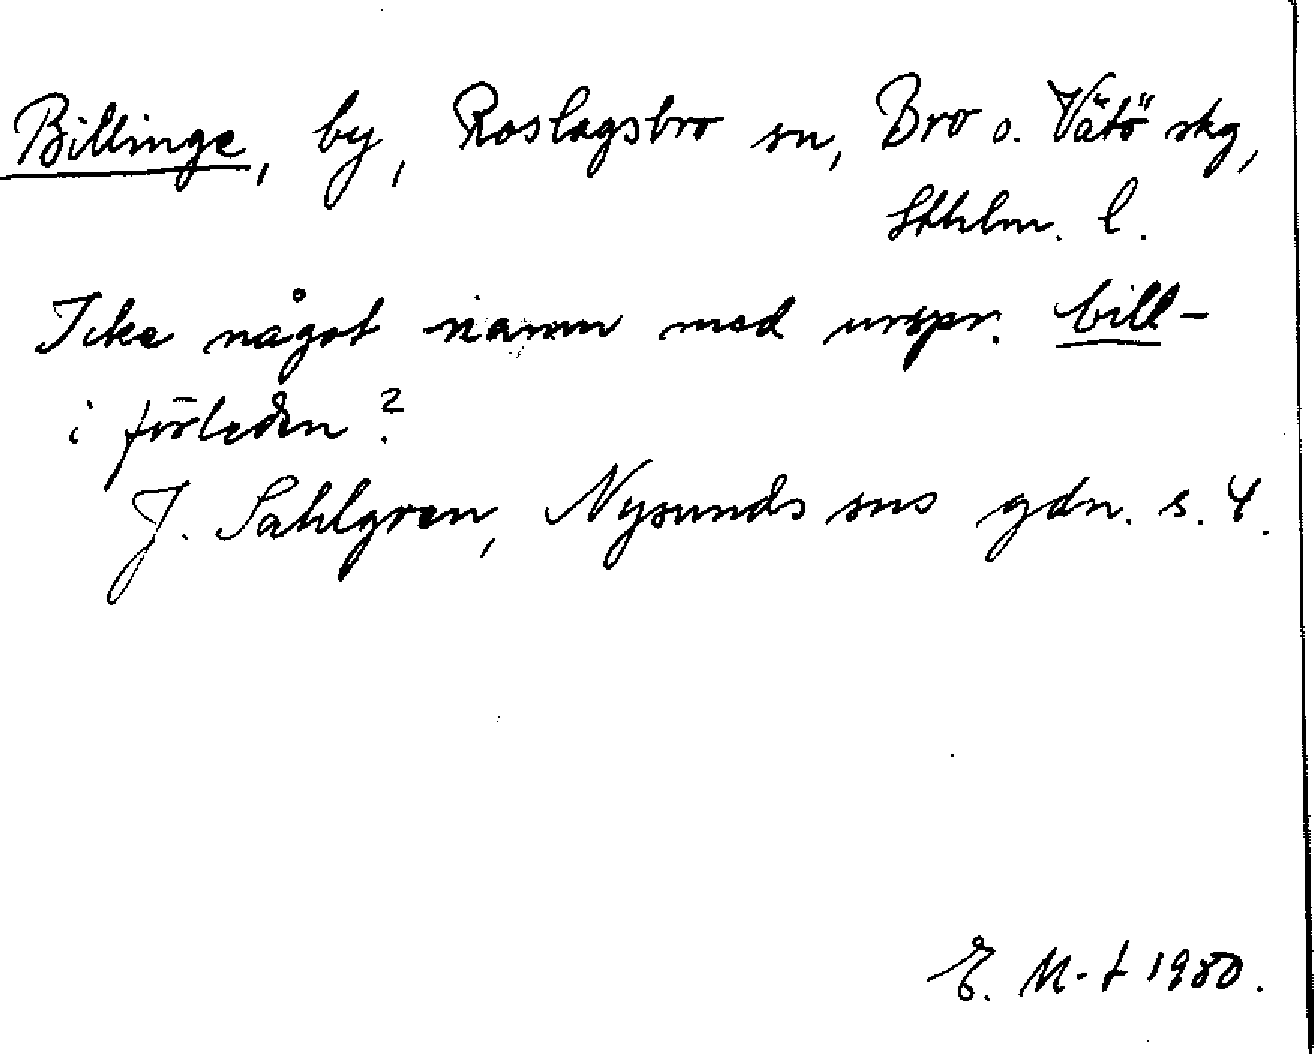 Billinge, by, Roslagsbro sn, Bro o. Vätö skg,
Sthlm. l.
Icke något namn med urspr. bill-
i förleden?
J. Sahlgren, Nysunds sns gdn. s. 4.
E. M-t 1980.